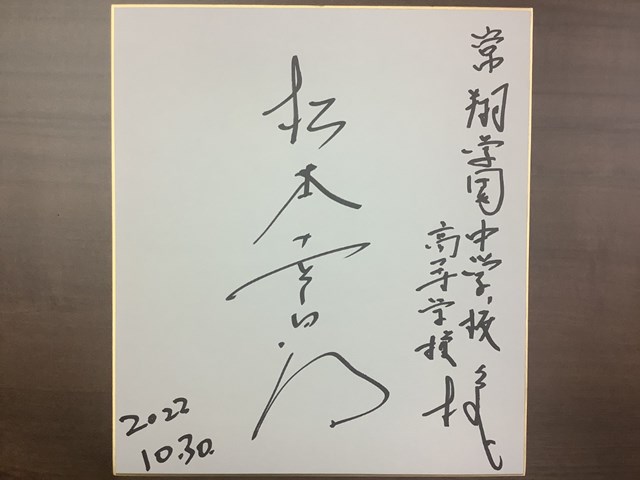 常翔学園中学校
高等学校
様
松本
2022
10.30.